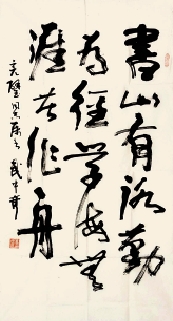 書山有路勤
為徑学海無
涯苦作舟